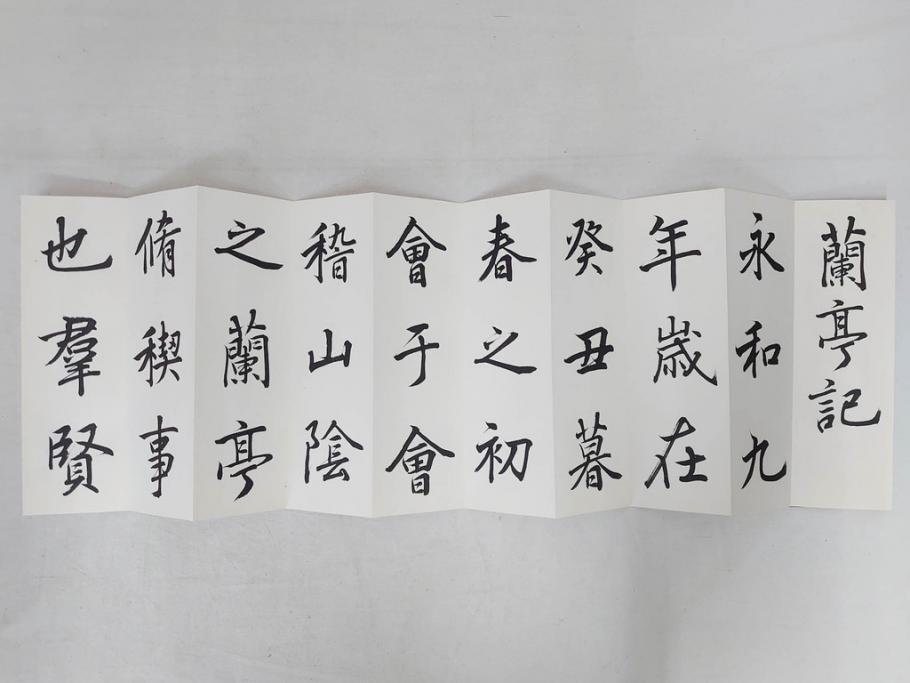 蘭亭記
永和九
年歲在
癸丑暮
春之初
會于會
稽山陰
之蘭亭
脩稧事
也羣賢